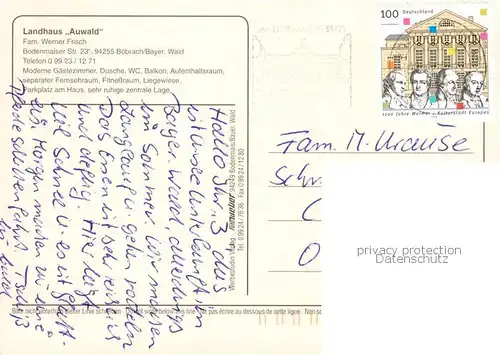 Landhaus „Auwald"
Fam. Werner Frisch
Bodenmaiser Str. 23, 94255 Böbrach/Bayer. Wald
Telefon 0 99 23 / 12 71
Moderne Gästezimmer, Dusche, WC, Balkon, Aufenthaltsraum,
separater Fernsehraum, Fitneßraum, Liegewiese,
Parkplatz am Haus, sehr ruhige zentrale Lage.
100 Deutschland
1100 Jahre Weimar - Kulturstadt Europas
Hallo Ihr 3, das
ist unsere Unterkunft im
Bayer. Wald, allerdings
im Sommer. Wir machen
Langlauf u. gehen rodeln
Das Essen ist sehr reichl.
und üppig. Hier liegt
viel Schnee u. es ist glatt.
Morgen machen wir eine
Pferdeschlittenfahrt
Werbestudio Verlag 94249 Bodenmais/Bayer. Wald
Tel. 0 99 24 / 76 36 · Fax 0 99 24 / 12 80
Fam. M. Krause
Sch
O
privacy protection
Datenschutz
Bitte nicht unterhalb dieser Linie schreiben · Do not write below this line · Ne pas écrire au dessous de cette ligne · Non sc